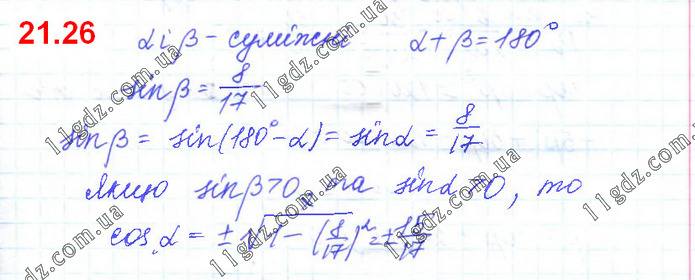 21.26
α і β - суміжні α + β = 180°
sin β = 8/17
sin β = sin(180° - α) = sin α = 8/17
Якщо sin β > 0, та sin α > 0, то
cos α = ± √(1 - (8/17)²) = ± 15/17
11gdz.com.ua
11gdz.com.ua
11gdz.com.ua
11gdz.com.ua
11gdz.com.ua
11gdz.com.ua